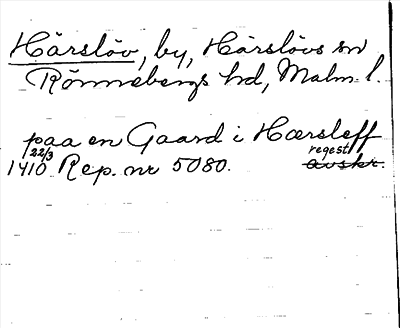 Härslöv, by, Härslövs sn
Rönnebergs hd, Malm. l.
paa en Gaard i Hærsleff
22/3 regest
1410 Rep. nr 5080. avskr.